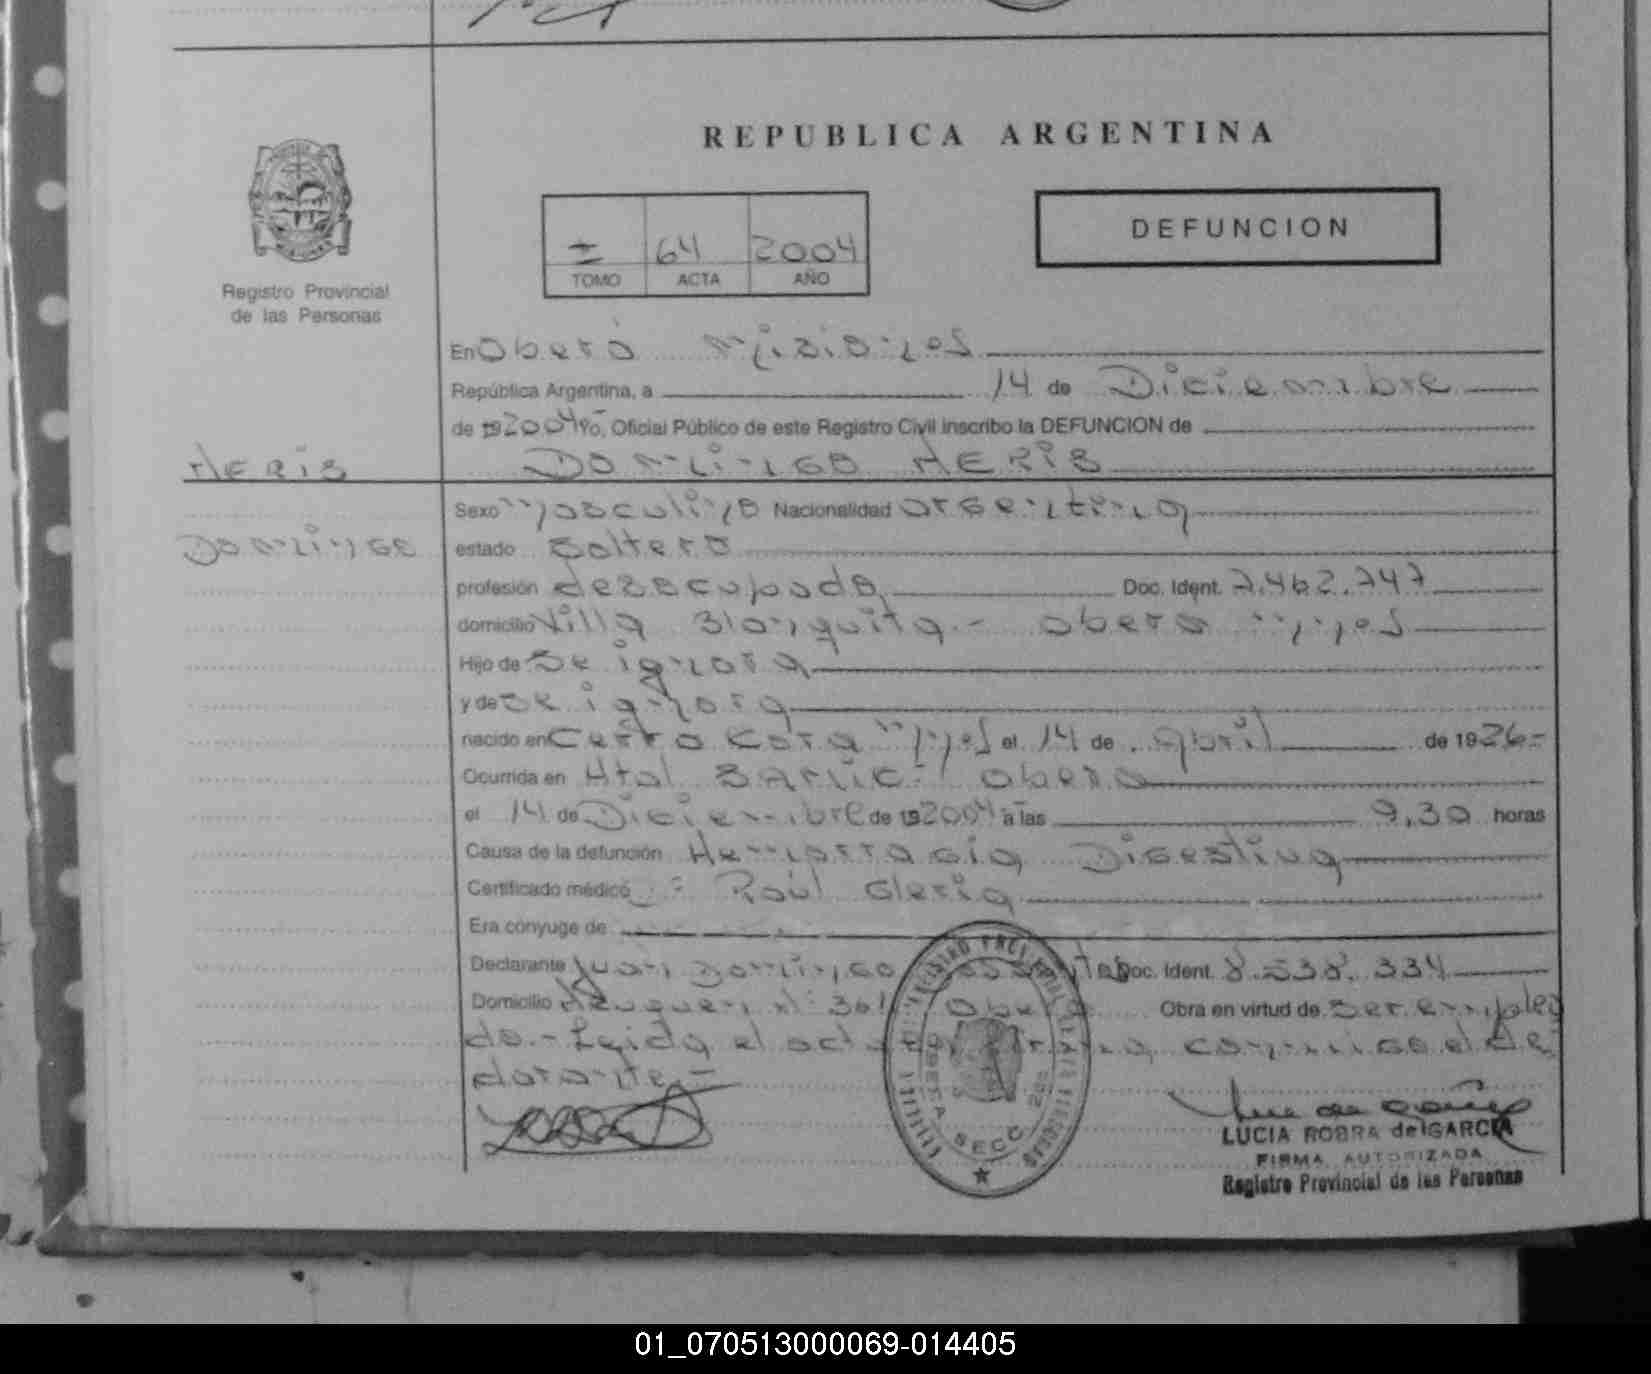 REPUBLICA ARGENTINA
DEFUNCION
64 2004
TOMO ACTA AÑO
Registro Provincial
de las Personas
En Oberá Misiones
República Argentina, a 14 de Diciembre
de 19 2004 Yo, Oficial Público de este Registro Civil inscribo la DEFUNCION de
NERIS Domingo NERIS
Sexo masculino Nacionalidad argentina
Domingo estado soltero
profesión desocupado Doc. Ident. 7.462.747
domicilio Villa Blanquita - Oberá Mnes
Hijo de Se ignora
y de Se ignora
nacido en Cerro Cora Mnes el 14 de abril de 1926-
Ocurrida en Htal Oberá
el 14 de Diciembre de 19 2004 a las 9,30 horas
Causa de la defunción Hemorragia Digestiva
Certificado médico Raúl Gleria
Era cónyuge de
Declarante Juan Domingo Doc. Ident. 8.538.334
Domicilio Neuquen Nº 361 Oberá Obra en virtud de ser emplea
do.- Leida el acta firma conmigo el de
clarante.-
OBERA SECC 2da
LUCIA ROBRA de GARCIA
FIRMA AUTORIZADA
Registro Provincial de las Personas
01_070513000069-014405